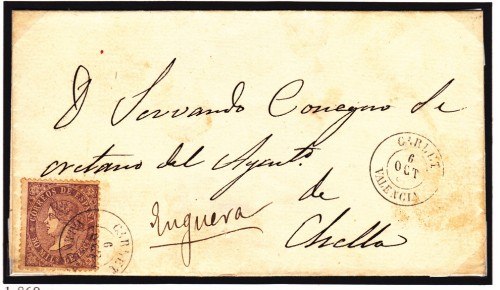 D Servando Conegero Se
cretano del Ayunto.
de
Enguera
Chella
CARLET
6
OCT
VALENCIA
CORREOS DE ESPAÑA
CARLET
6
1.869